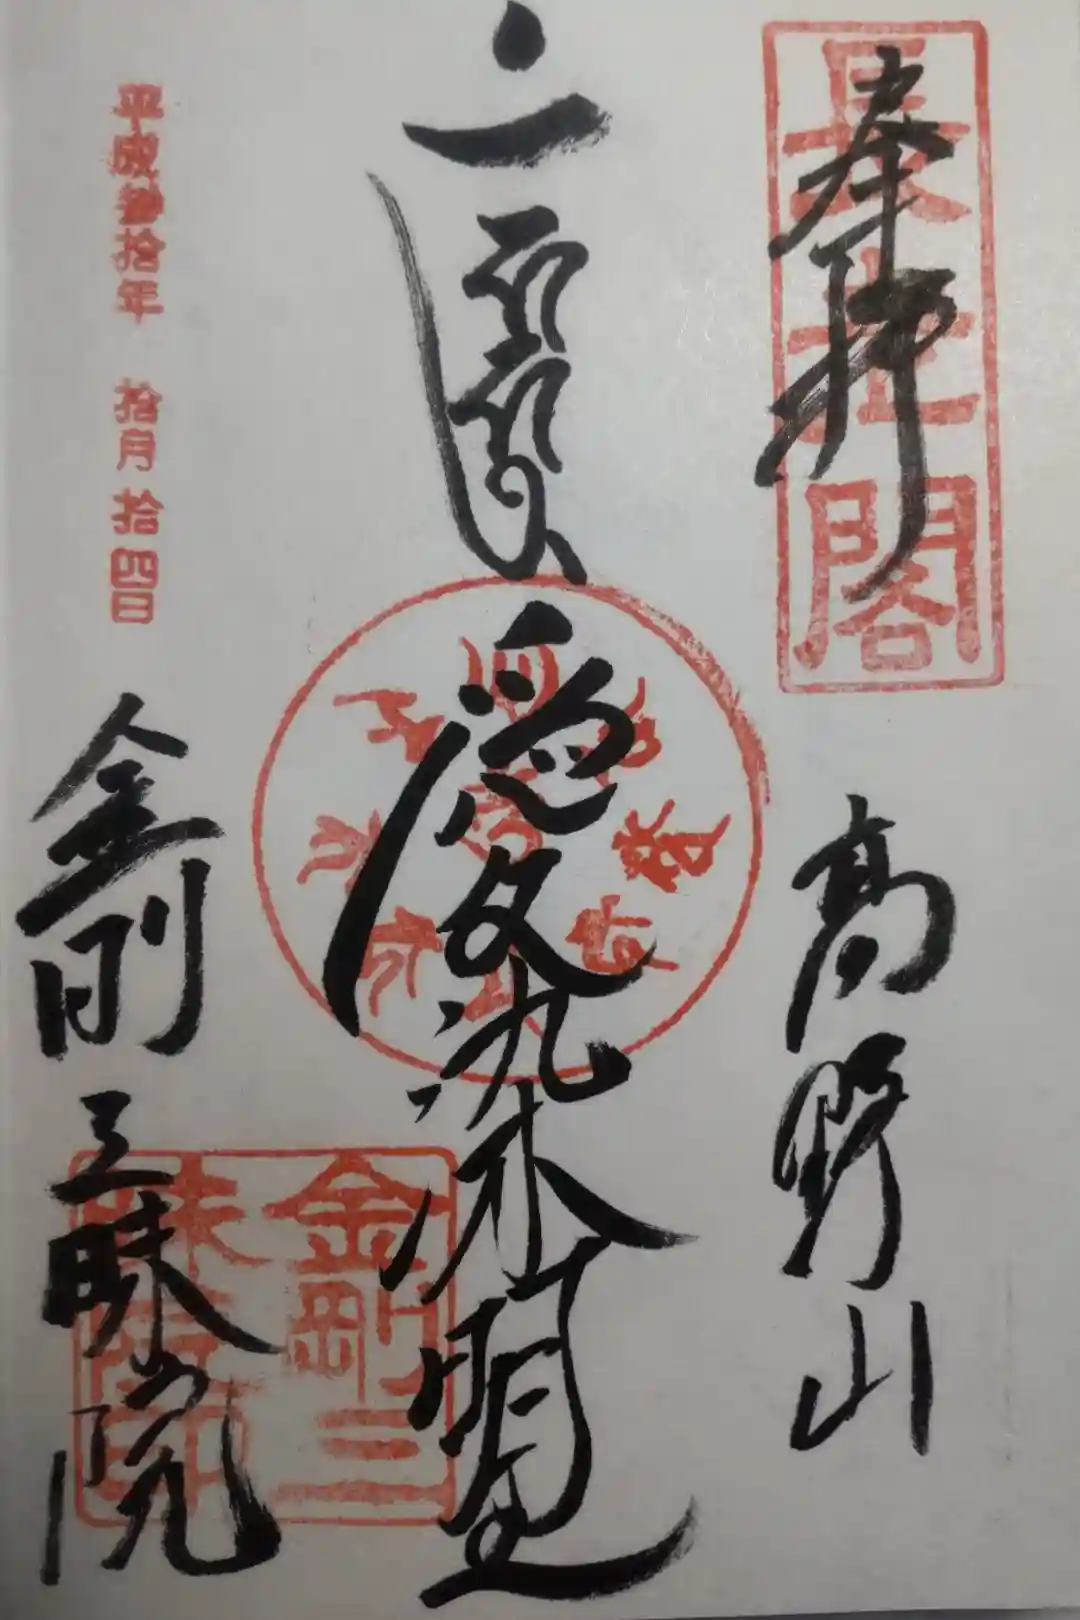 奉拝
長生閣
高野山
愛染明王
金剛三昧院
金剛三
昧院印
平成参拾年 拾月 拾四日